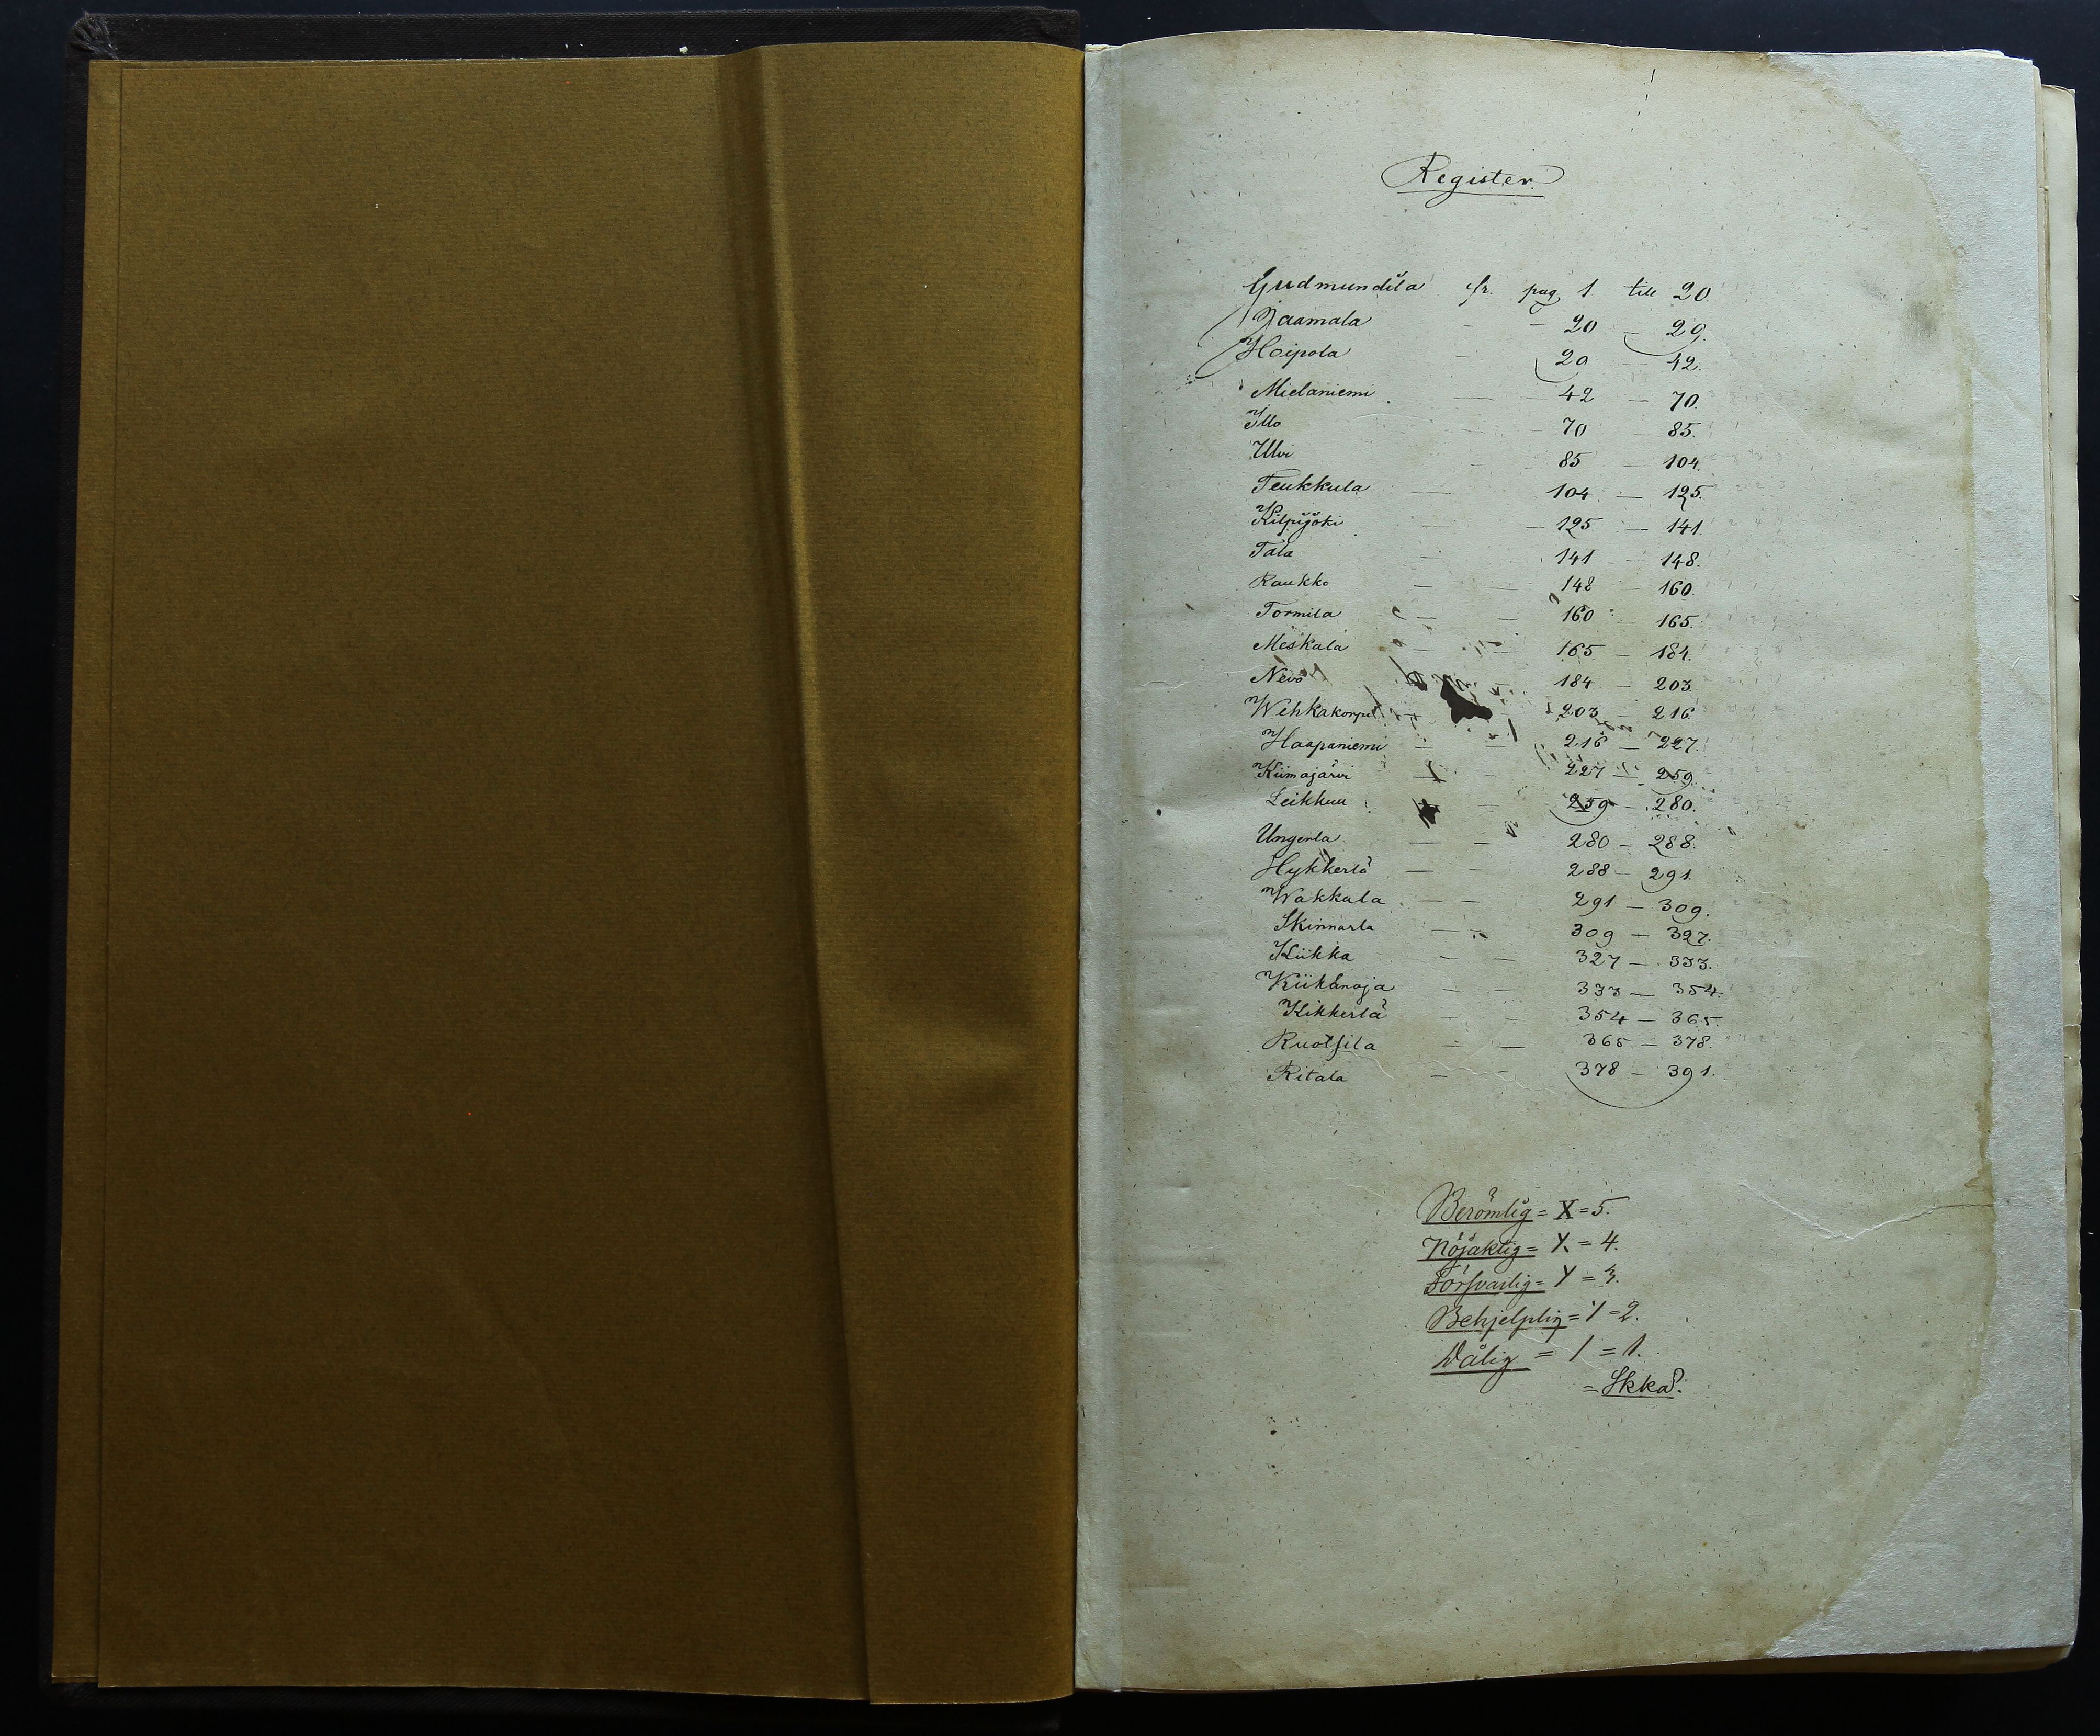 Register.
Gudmundila fr. pag. 1 till 20.
Jaamala - - 20 - 29.
Hoipola - 29 - 42.
Mielaniemi - - 42 - 70.
Illo - - 70 - 85.
Ulvi - - 85 - 104.
Teukkula - 104 - 125.
Kilpijoki - - 125 - 141.
Tala - 141 - 148.
Raukko - - 148 - 160.
Tormila - - 160 - 165.
Meskala - - 165 - 184.
Nevo - 184 - 203.
Wehkakorpi - 203 - 216.
Haapaniemi - - 216 - 227.
Kiimajärvi - - 227 - 259.
Leikkuu - - 259 - 280.
Ungerla - - 280 - 288.
Hykkerlä - - 288 - 291.
Wakkala - - 291 - 309.
Skinnarla - - 309 - 327.
Kiikka - - 327 - 333.
Kiikanoja - - 333 - 354.
Kikkerlä - - 354 - 365.
Ruotsila - - 365 - 378.
Ritala - - 378 - 391.
Berömlig = X = 5.
Nöjaktig = = 4.
Försvarlig = Y = 3.
Behjelplig = = 2.
Dålig = / = 1.